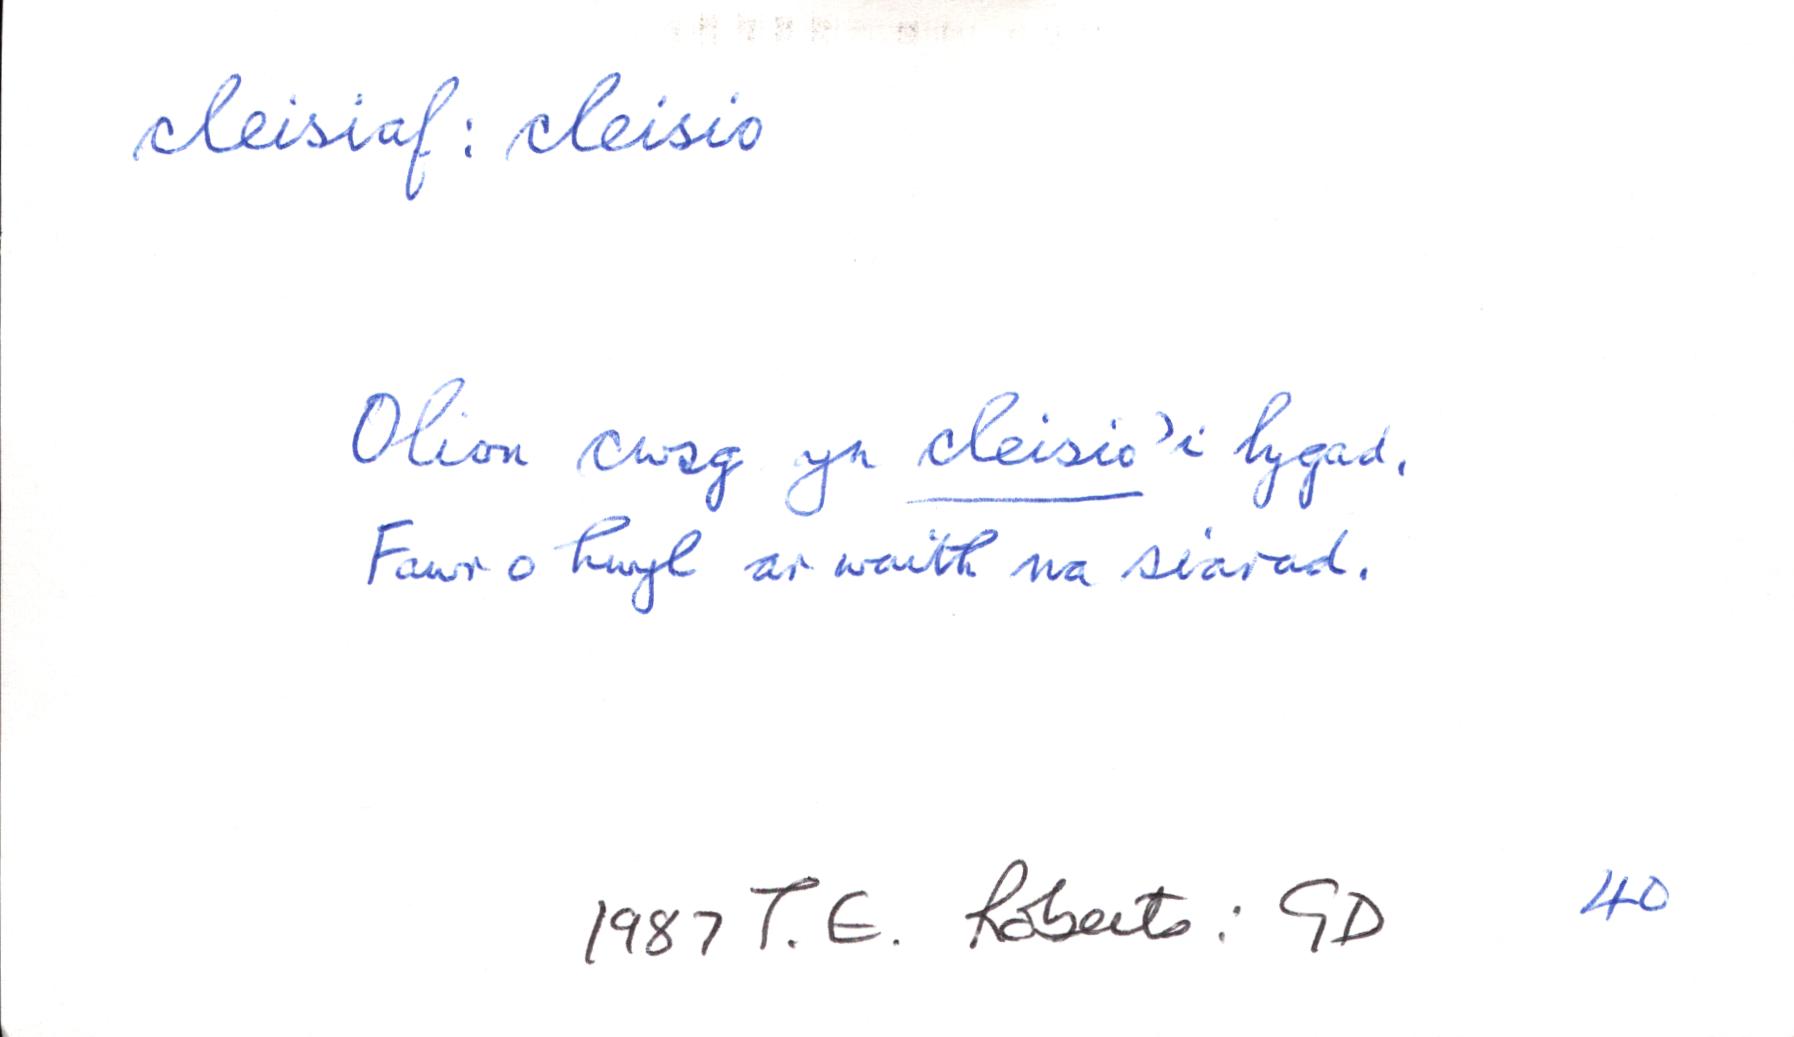 cleisiaf: cleisio
Olion cwsg yn cleisio'i lygad.
Fawr o hwyl ar waith na siarad.
1987 T. E. Roberts: GD 40